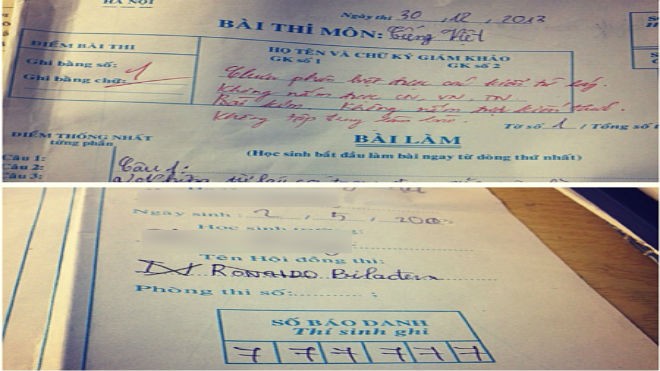 HÀ NỘI
Ngày thi 30, 12, 2013
BÀI THI MÔN: Tiếng Việt
ĐIỂM BÀI THI
Ghi bằng số: 1
Ghi bằng chữ:
HỌ TÊN VÀ CHỮ KÝ GIÁM KHẢO
GK số 1 GK số 2
Chưa phân biệt được các kiểu từ láy.
Không nắm được CN, VN, TN.
Bài kém. Không nắm được kiến thức.
Không tập trung làm bài.
Tờ số 1 / Tổng số
ĐIỂM THỐNG NHẤT
từng phần
BÀI LÀM
(Học sinh bắt đầu làm bài ngay từ dòng thứ nhất)
Câu 1:
Câu 2:
Câu 3:
Câu 1:
Ngày sinh: 2, 5, 200
Học sinh trường:
Tên Hội đồng thi:
RONALDO Biladen
Phòng thi số:
SỐ BÁO DANH
Thí sinh ghi
7 7 7 7 7 7